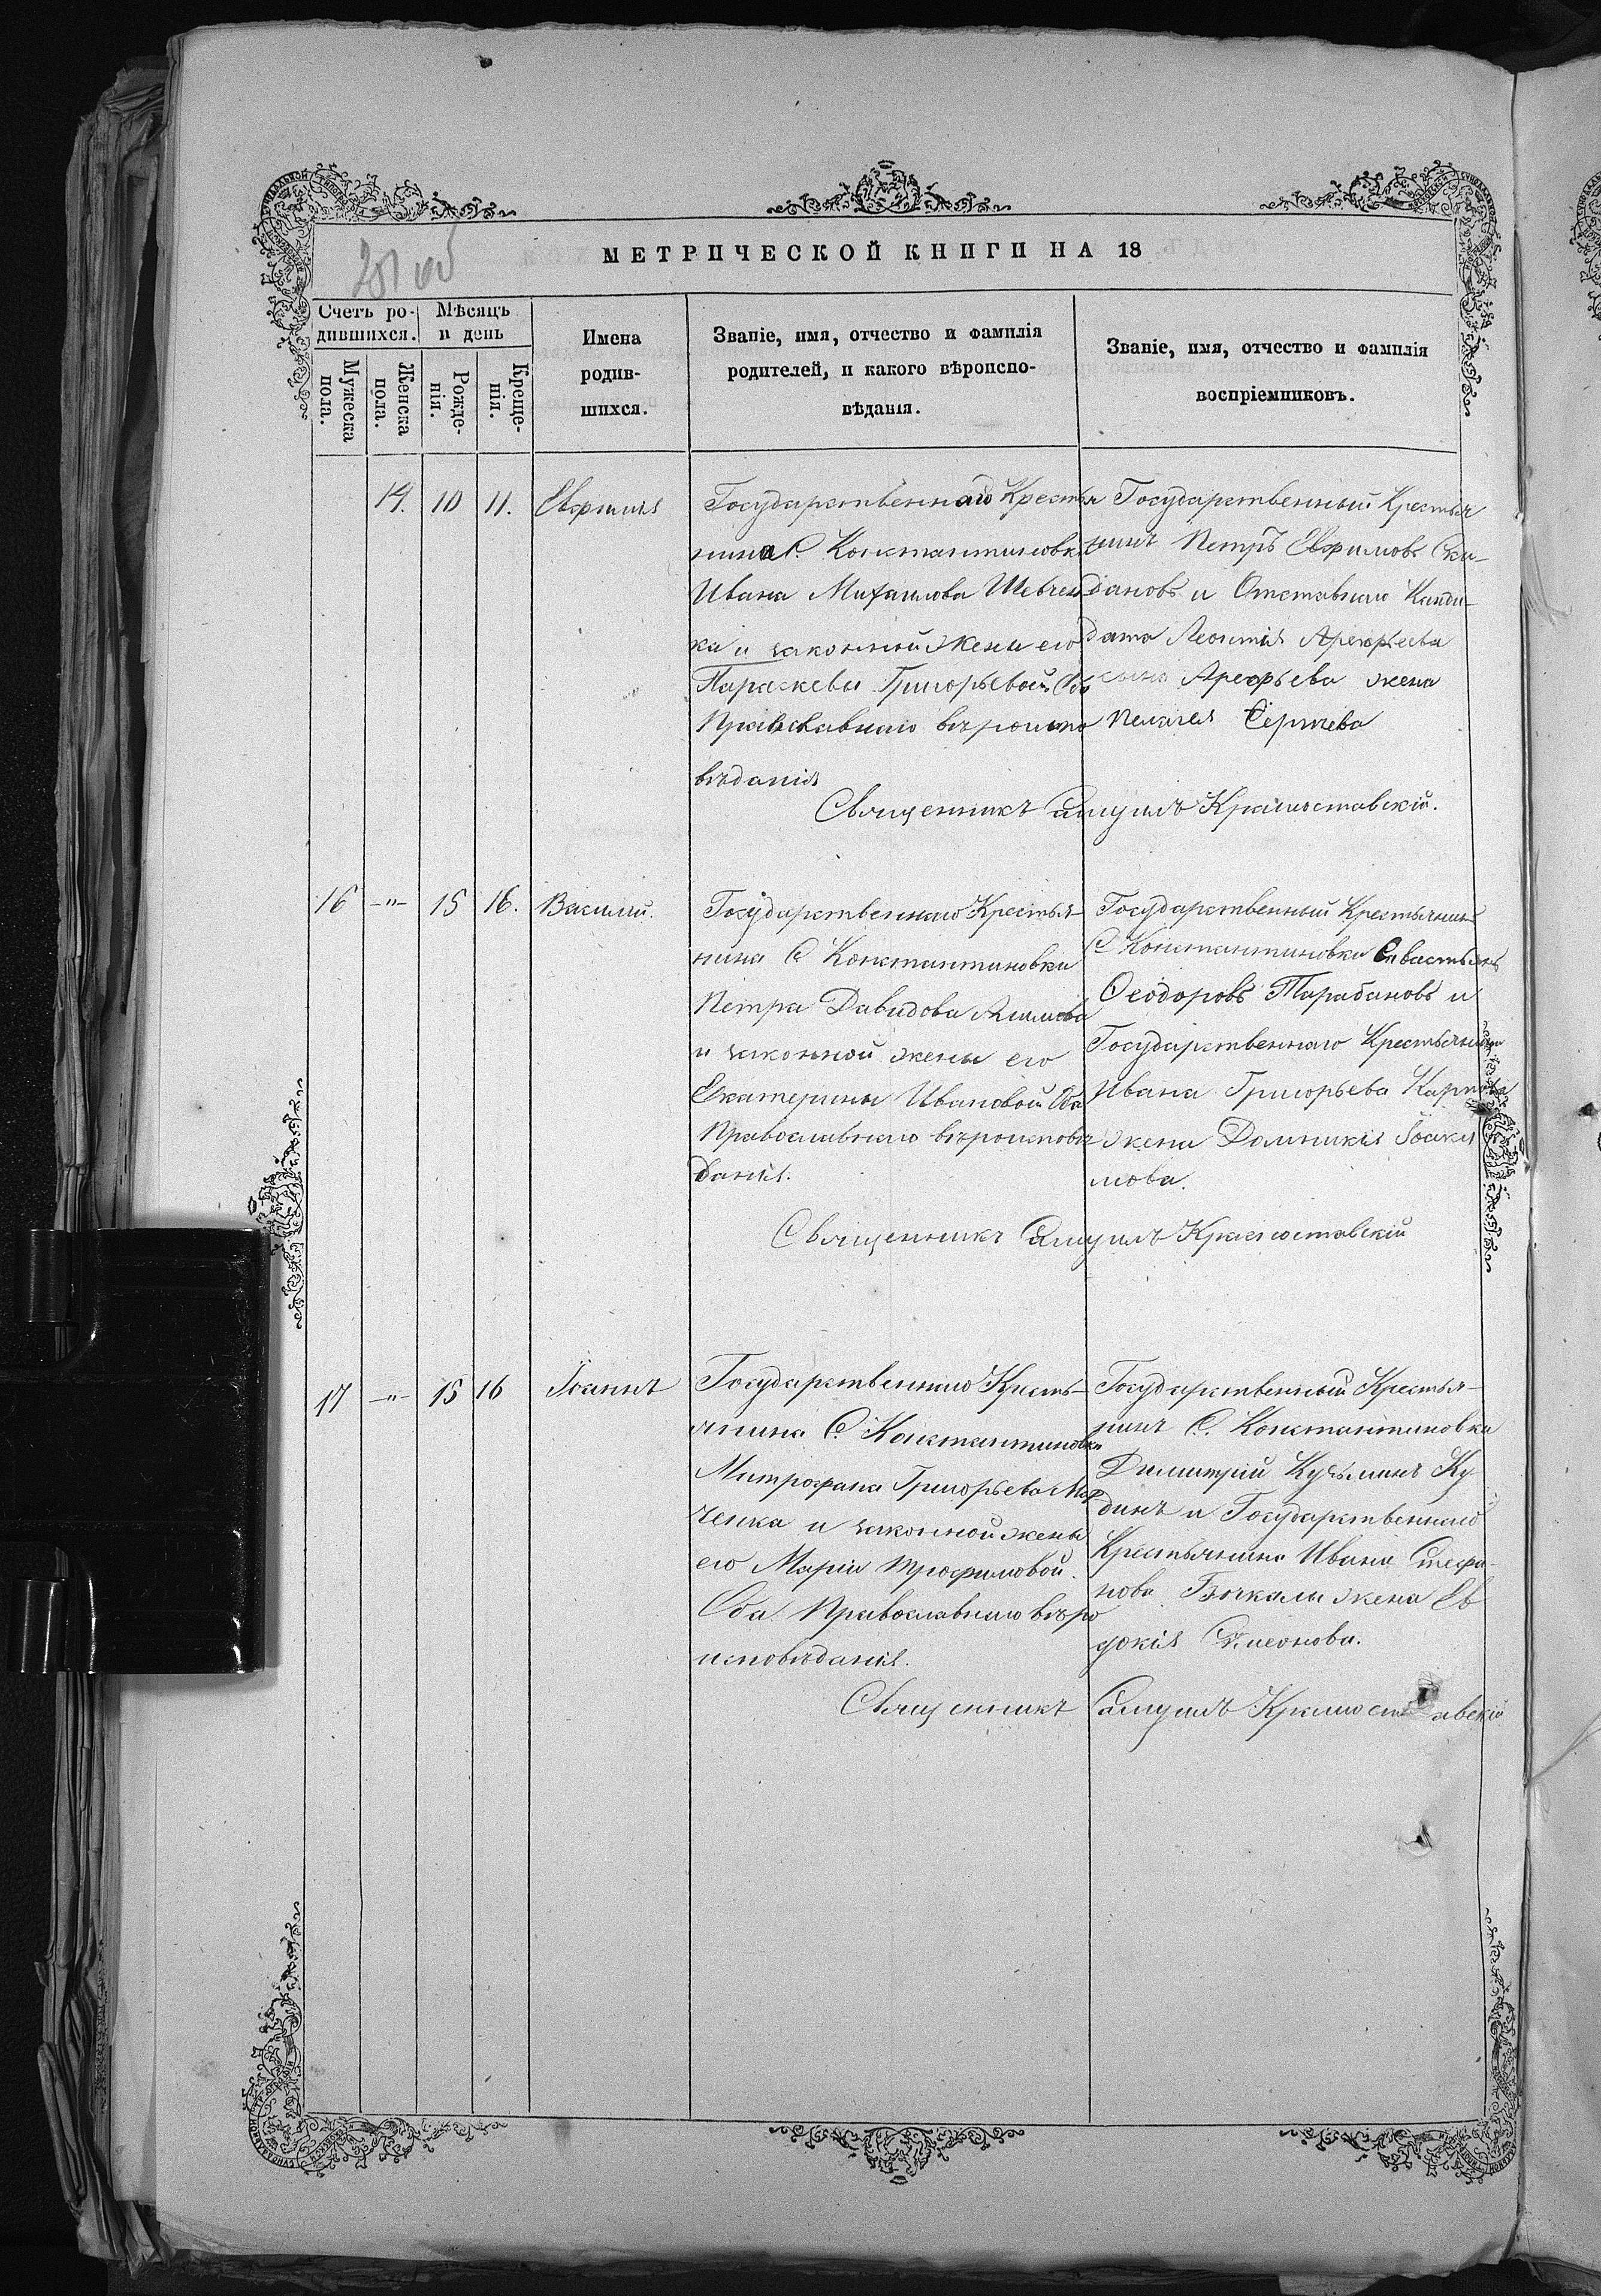 МЕТРИЧЕСКОЙ КНИГИ НА 18
281 об
Счетъ ро-
дившихся.
Мужеска
пола.
Женска
пола.
Мѣсяцъ
и день
Рожде-
нія.
Креще-
нія.
Имена
родив-
шихся.
Званіе, имя, отчество и фамилія
родителей, и какого вѣроиспо-
вѣданія.
Званіе, имя, отчество и фамилія
воспріемниковъ.
14. 10 11. Евфимія
Государственнаго Крестья
нина С. Константиновки
Ивана Михаилова Шевчен
ка и законной жены его
Параскевы Григорьевой Оба
Православнаго вѣроиспо
вѣданія
Государственный Крестья
нинъ Петръ Евфимовъ Ски-
дановъ и Отставнаго Канди-
дата Леонтія Арефьева
сына Арефьева жена
Пелагея Сергѣева
Священникъ Самуилъ Красноставскій.
16 -"- 15 16. Василій.
Государственнаго Крестья-
нина С Константиновки
Петра Давидова
и законной жены его
Екатерины Ивановой Оба
Православнаго вѣроисповѣ
данія.
Государственный Крестьянинъ
С Константиновки Севастьянъ
Феодоровъ Тарабановъ и
Государственнаго Крестьянина
Ивана Григорьева Карпова
жена Домникія Іоаки
мова.
Священникъ Самуилъ Красноставскій
17 -"- 15 16 Іоаннъ
Государственнаго Кресть-
янина С. Константиновки
Митрофана Григорьева Мар
ченка и законной жены
его Маріи Трофимовой.
Оба Православнаго вѣро
исповѣданія.
Государственный Крестья-
нинъ С. Константиновки
Димитрій Кузьминъ Ку
динъ и Государственнаго
Крестьянина Ивана Стефа-
нова жена Ев
докія Симеонова.
Священникъ Самуилъ Красноставскій